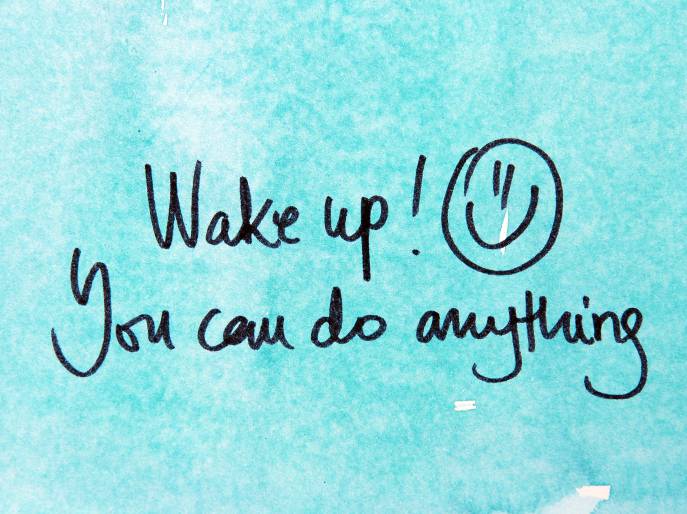 Wake up!
You can do anything